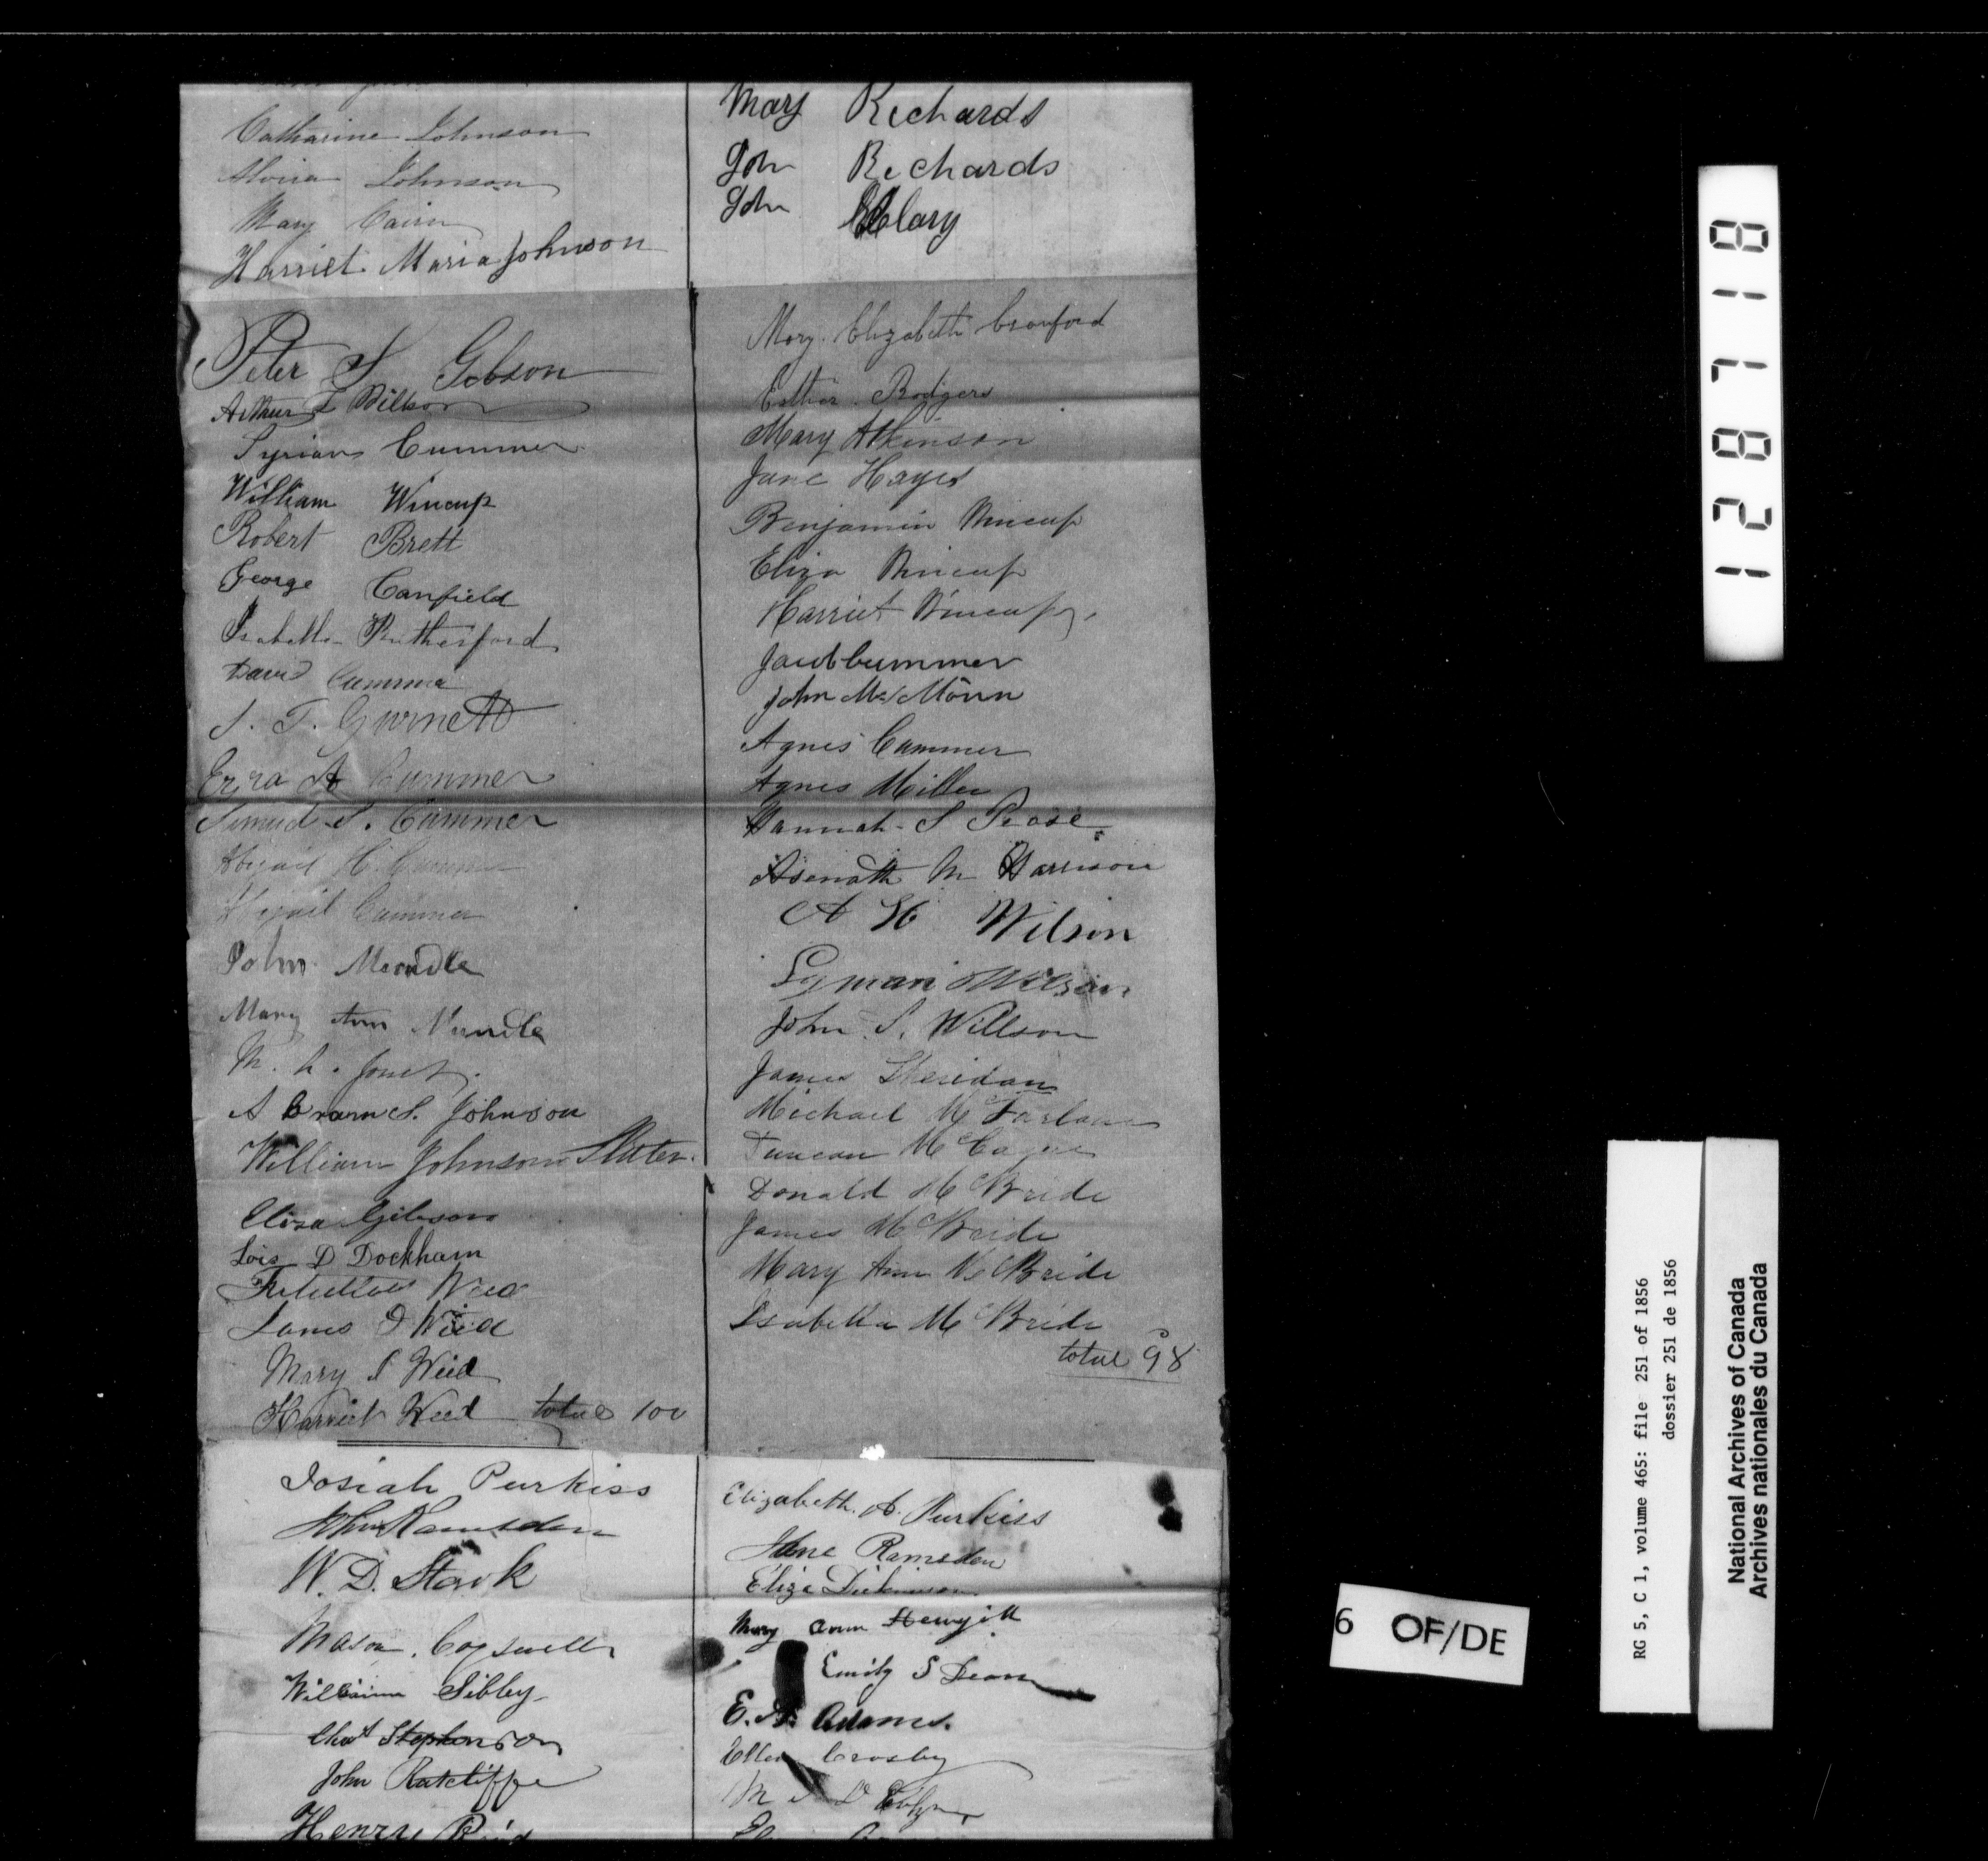 Catharine Johnson
Johnson
Mary Cairn
Harriet Maria Johnson
Peter S Gibson
Arthur L Willson
Cummer
William Wincup
Robert Brett
George Canfield
Isabella Rutherford
David Cummer
J. T. Gurnett
Ezra A Cummer
Samuel S. Cummer
Abigail H. Cummer
Abigail Cummer
John Mundle
Mary Ann Mundle
M. L. Jones
Abram S. Johnson
William Johnson
Eliza Gibson
Lois D Dockham
Weed
James D Weed
Mary S Weed
Harriet Weed total 100
Josiah Purkiss
John Ramsden
W. D. Stark
Mason Cogswell
William Sibley
Chas Stephenson
John Ratcliffe
Henry
Mary Richards
John Richards
John Clary
Mary Elizabeth Cranford
Esther Rodgers
Mary Atkinson
Jane Hayes
Benjamin Wincup
Eliza Wincup
Harriet Wincup
Jacob Cummer
John
Agnes Cummer
Agnes Miller
Hannah S Pease
Asenath M Harrison
A H Wilson
Lyman Willson
John S. Willson
James Sheridan
Michael McFarlane
Duncan
Donald McBride
James McBride
Mary Ann McBride
Isabella McBride
total 98
Elizabeth A. Purkiss
Jane Ramsden
Eliza Dickinson
Mary Ann
Emily S Dean
E. A. Adams.
Ellen Crosby
M
128718
6 OF/DE
RG 5, C 1, volume 465: file 251 of 1856
dossier 251 de 1856
National Archives of Canada
Archives nationales du Canada